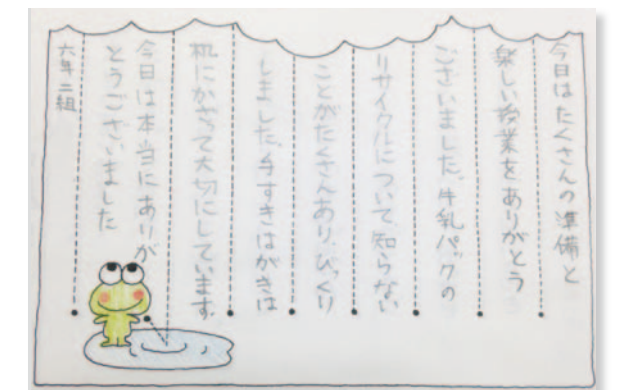 今日はたくさんの準備と
楽しい授業をありがとう
ございました。牛乳パックの
リサイクルについて知らない
ことがたくさんあり、びっくり
しました。手すきはがきは
机にかざって大切にしています。
今日は本当にありが
とうございました
六年二組